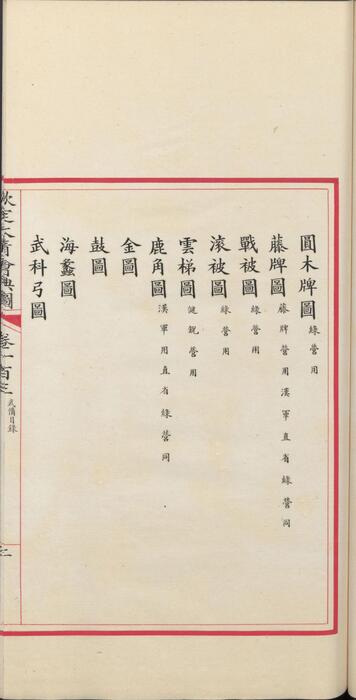 圓木牌圖 綠營用
藤牌圖 藤牌營用漢軍直省綠營同
戰被圖 綠營用
滚被圖 綠營用
雲梯圖 健銳營用
鹿角圖 漢軍用直省綠營同
金圖
鼓圖
海螺圖
武科弓圖
欽定大清會典圖 卷一百三 武備目錄 二